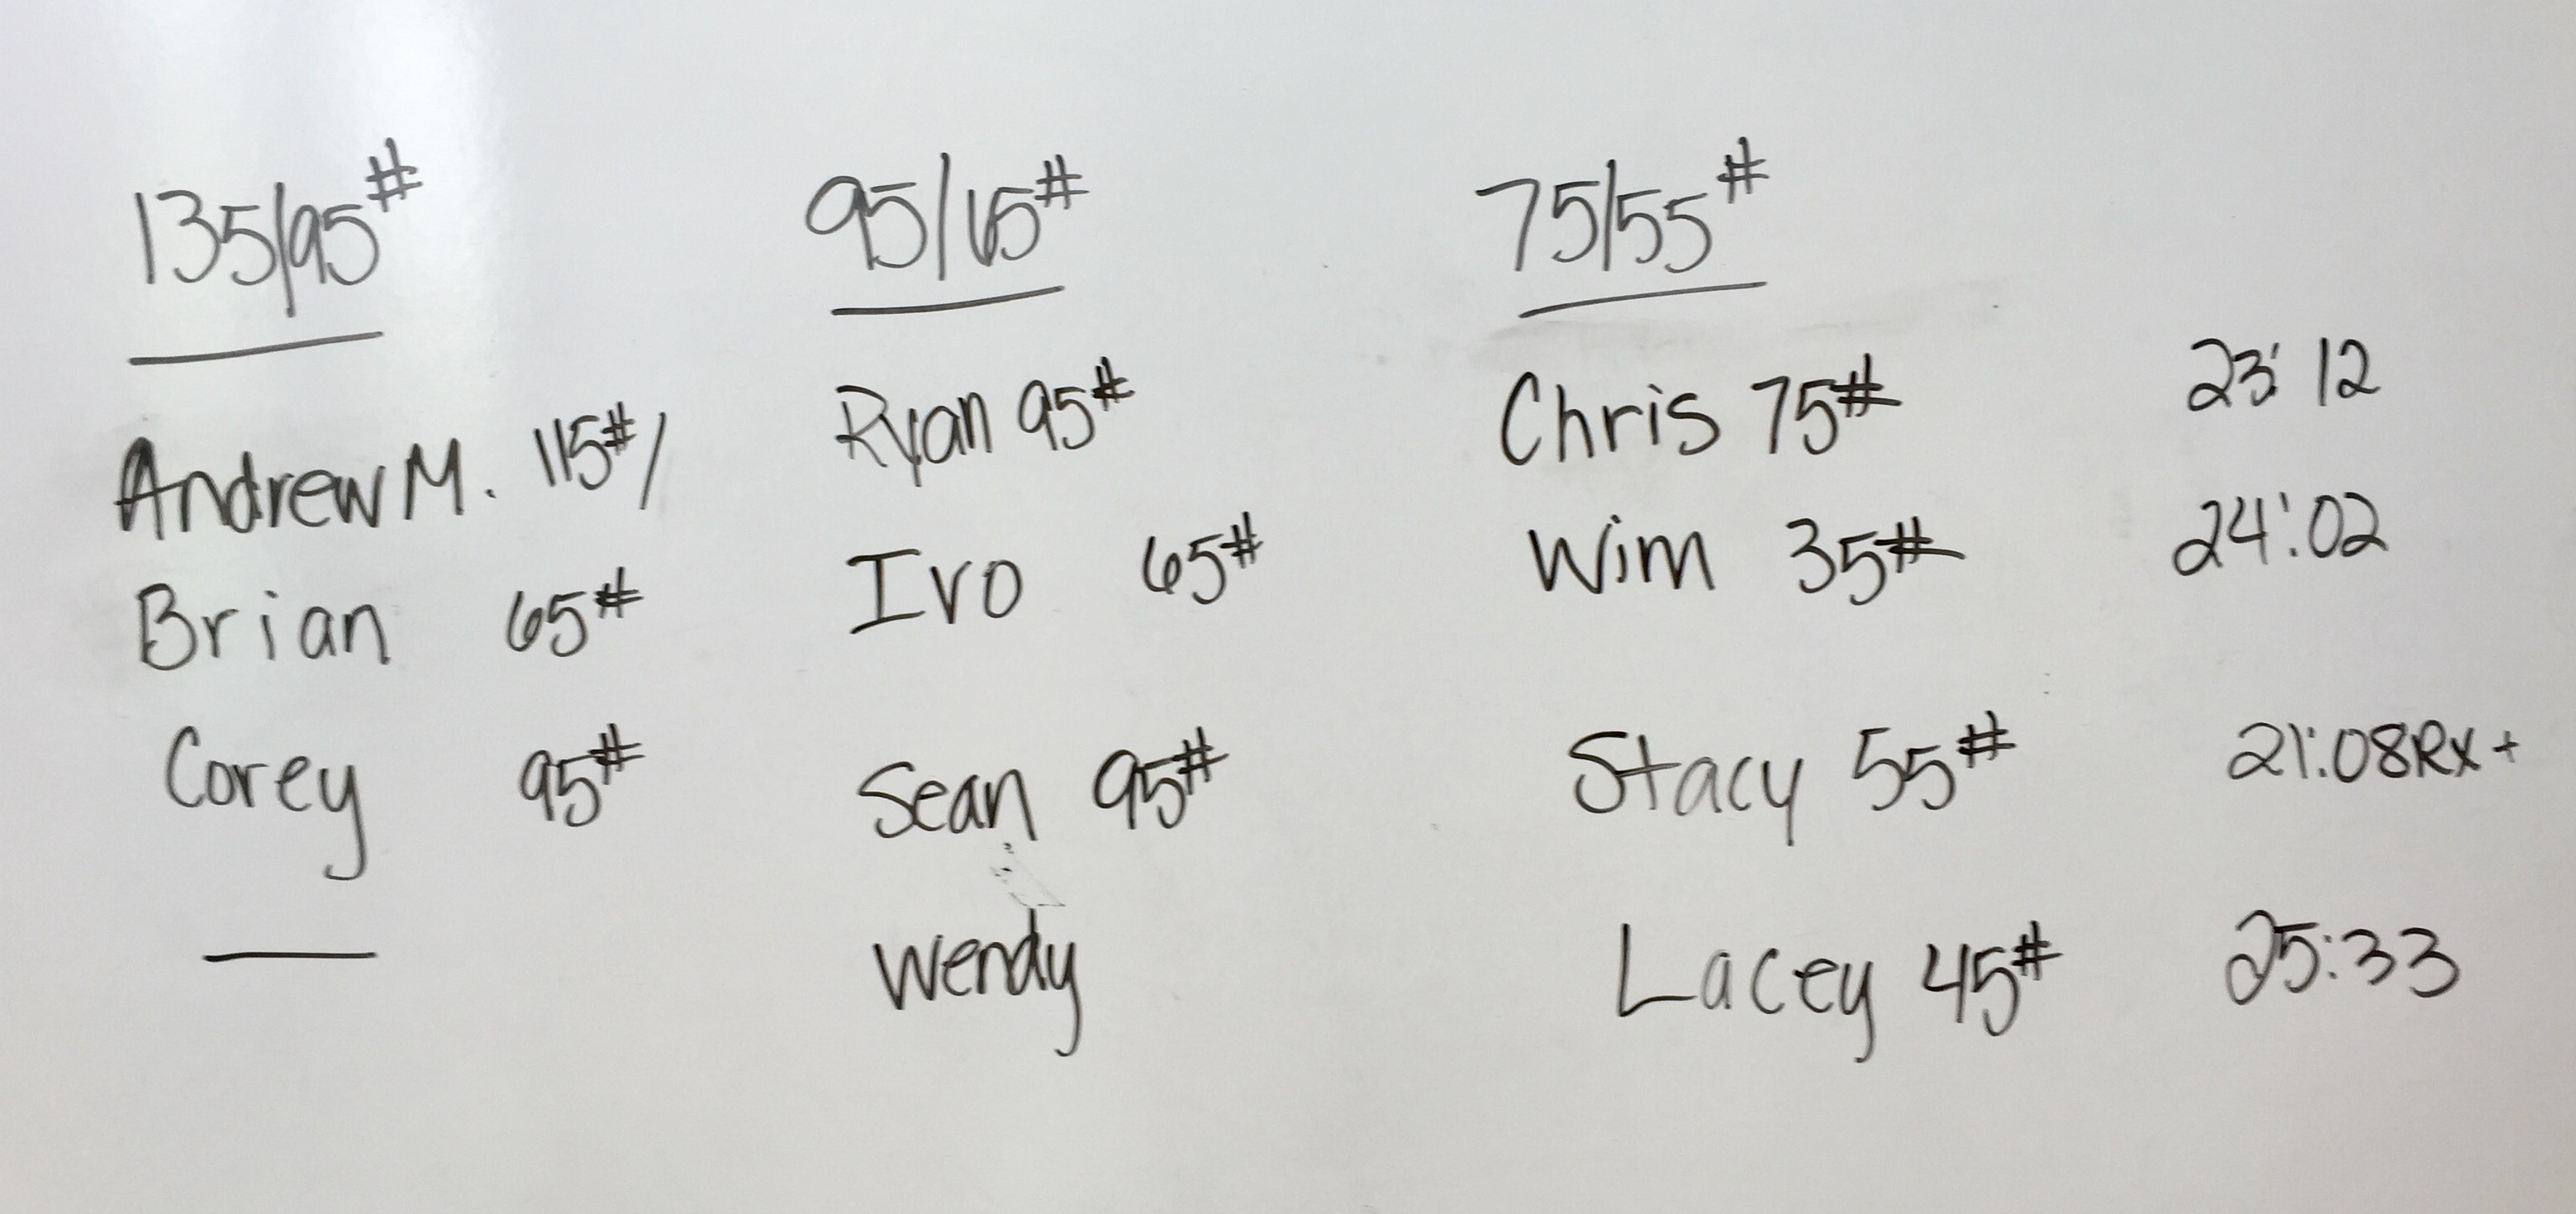 135/95# 95/65# 75/55#
Andrew M. 115#/ Ryan 95# Chris 75# 23:12
Brian 65# Ivo 65# Wim 35# 24:02
Corey 95# Sean 95# Stacy 55# 21:08 Rx+
— Wendy Lacey 45# 25:33